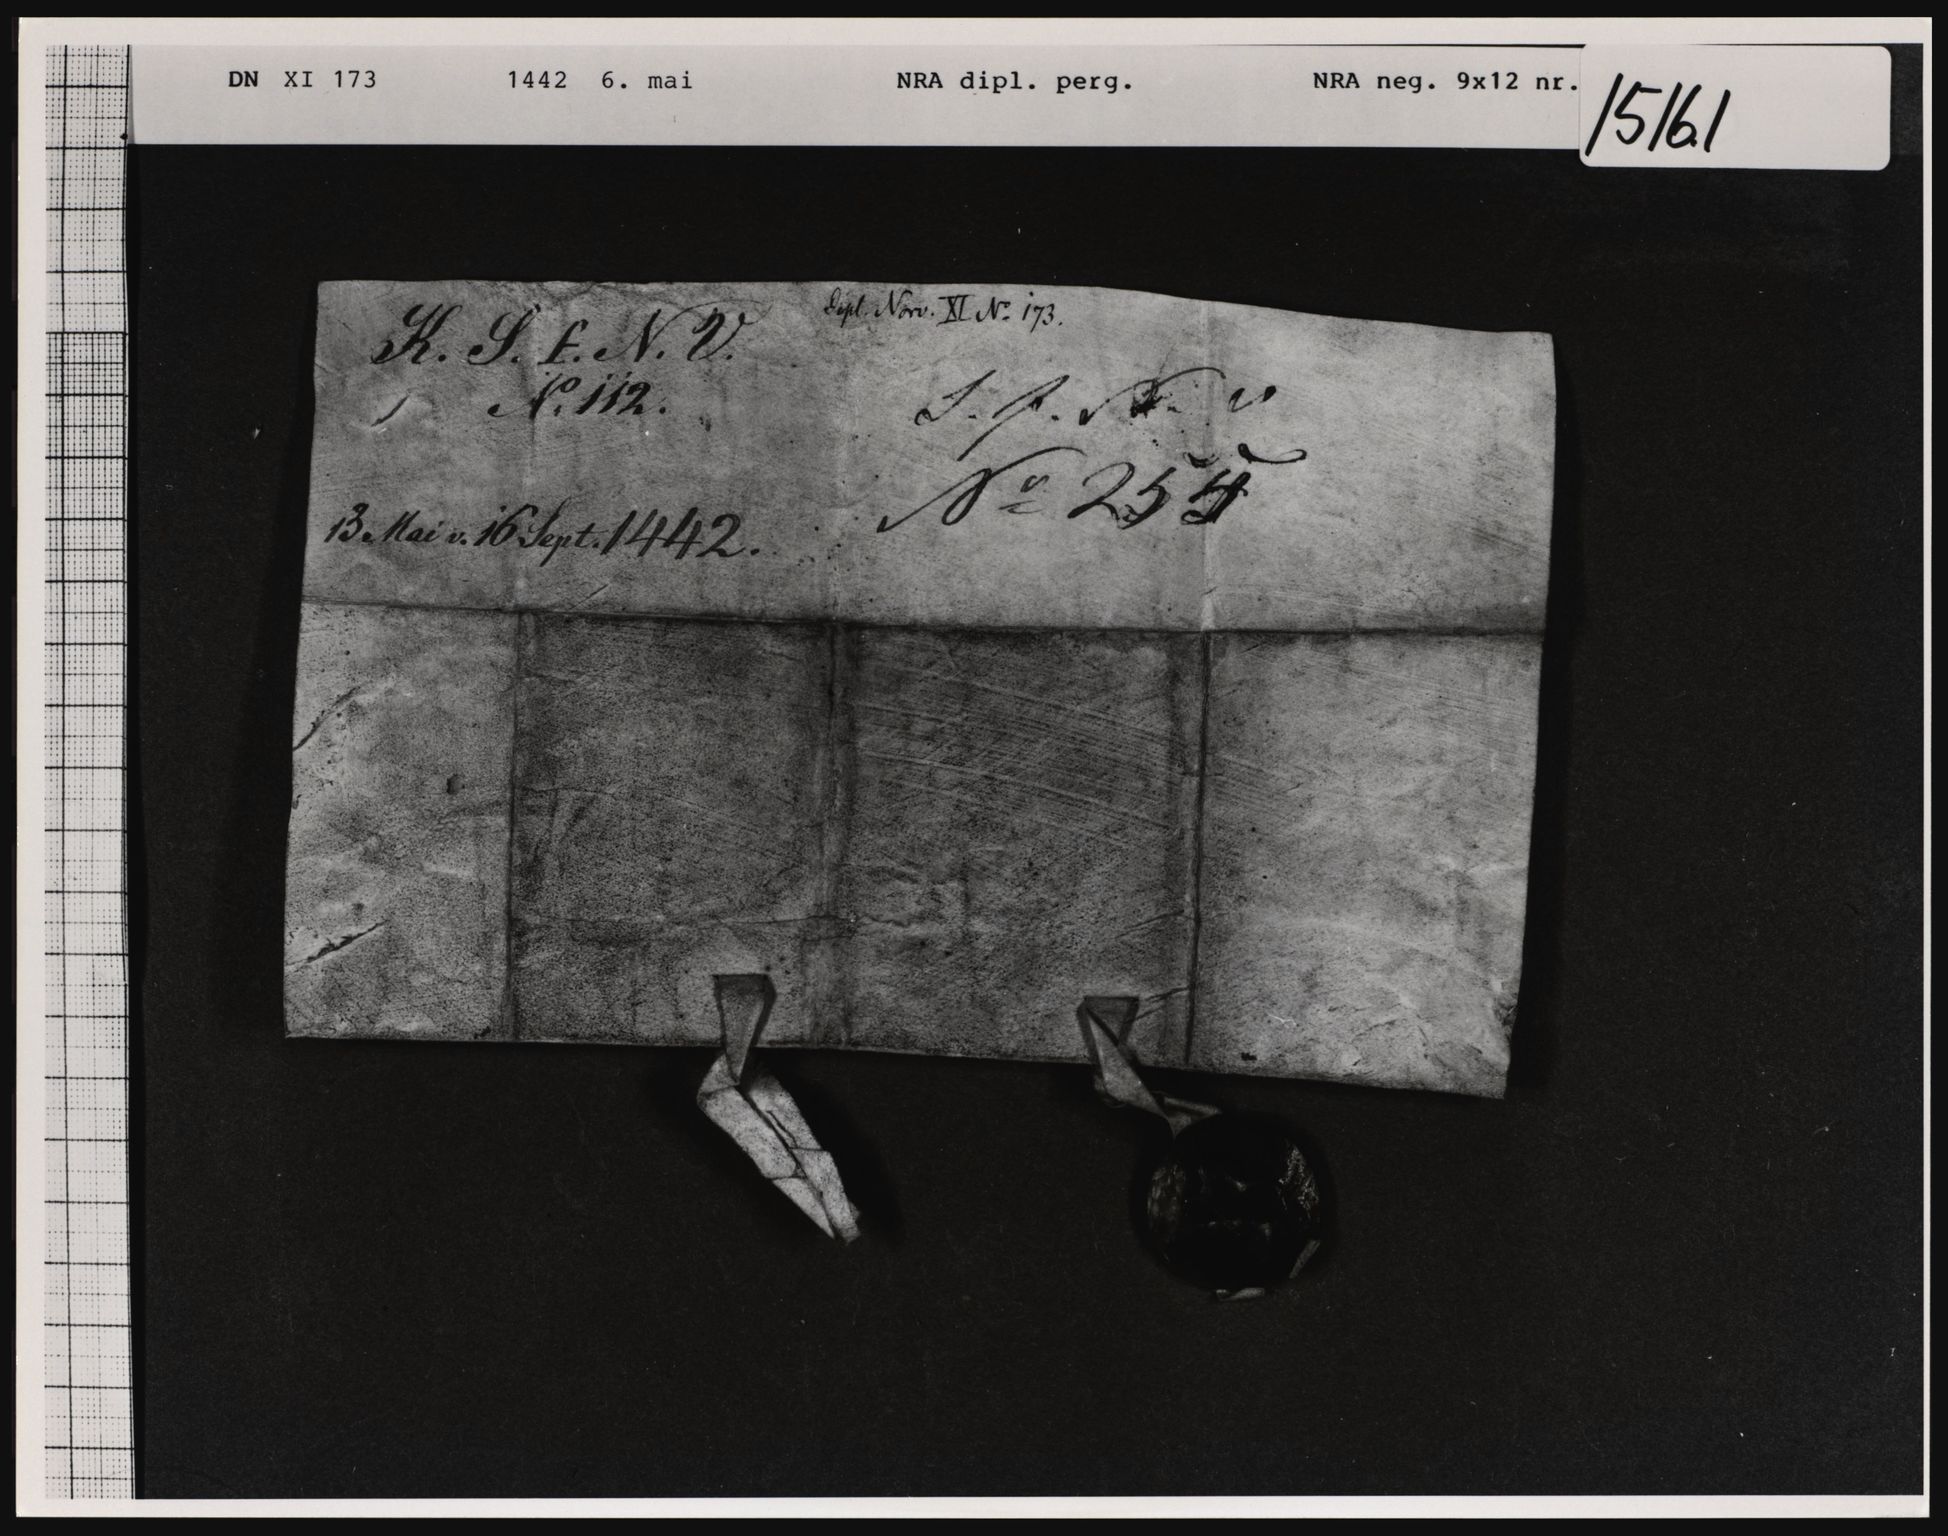 DN XI 173 1442 6. mai NRA dipl. perg. NRA neg. 9x12 nr. 15161
Dipl. Norv. XI No. 173.
K. S. f. N. V.
No. 112.
S. f. N. V.
No 255
13. Mai v. 16 Sept. 1442.